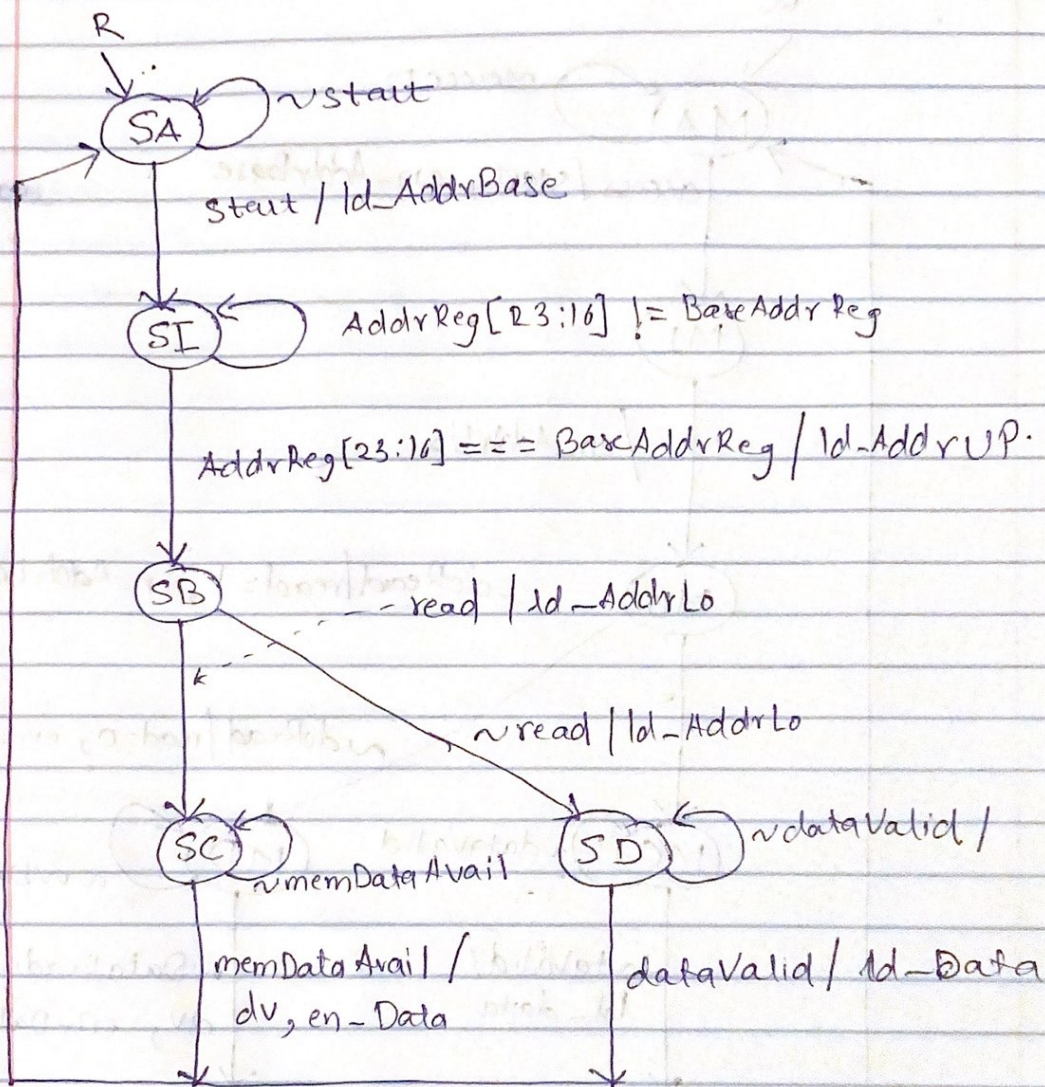 R
SA
~start
start / ld_AddrBase
SI
AddrReg[23:16] != BaseAddrReg
AddrReg[23:16] === BaseAddrReg / ld_AddrUP.
SB
read / ld_AddrLo
~read / ld_AddrLo
SC
~memDataAvail
SD
~dataValid /
memDataAvail /
dv, en_Data
dataValid / ld_Data